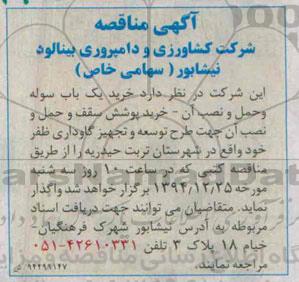 آگهی مناقصه
شرکت کشاورزی و دامپروری بینالود
نیشابور ( سهامی خاص )
این شرکت در نظر دارد خرید یک باب سوله
وحمل و نصب آن - خرید پوشش سقف و حمل و
نصب آن جهت طرح توسعه و تجهیز گاوداری ظفر
خود واقع در شهرستان تربت حیدریه را از طریق
مناقصه کتبی که در ساعت ۱۰ روز سه شنبه
مورخه ۱۳۹۴/۱۲/۲۵ برگزار خواهد شد واگذار
نماید. متقاضیان می توانند جهت دریافت اسناد
مربوطه به آدرس نیشابور شهرک فرهنگیان-
خیام ۱۸ پلاک ۳ تلفن ۴۲۶۱۰۳۳۱-۰۵۱
مراجعه نمایند.
۹۴۲۹۹۱۴۷